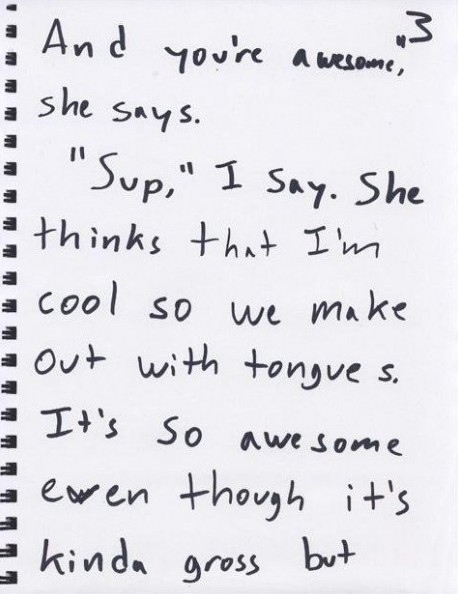 3
And you're awesome,"
she says.
"Sup," I say. She
thinks that I'm
cool so we make
out with tongues.
It's so awesome
even though it's
kinda gross but